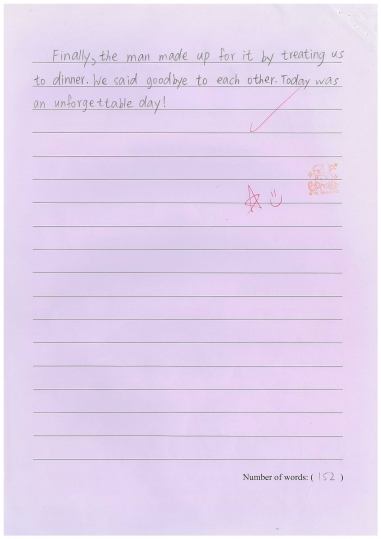 Finally, the man made up for it by treating us
to dinner. We said goodbye to each other. Today was
an unforgettable day!
Number of words: ( 152 )